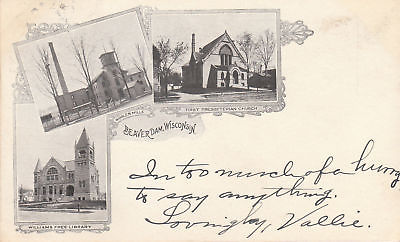 WOOLEN MILLS
FIRST PRESBYTERIAN CHURCH
BEAVER DAM, WISCONSIN
WILLIAMS FREE LIBRARY
In too much of a hurry
to say anything.
Lovingly, Vallie.